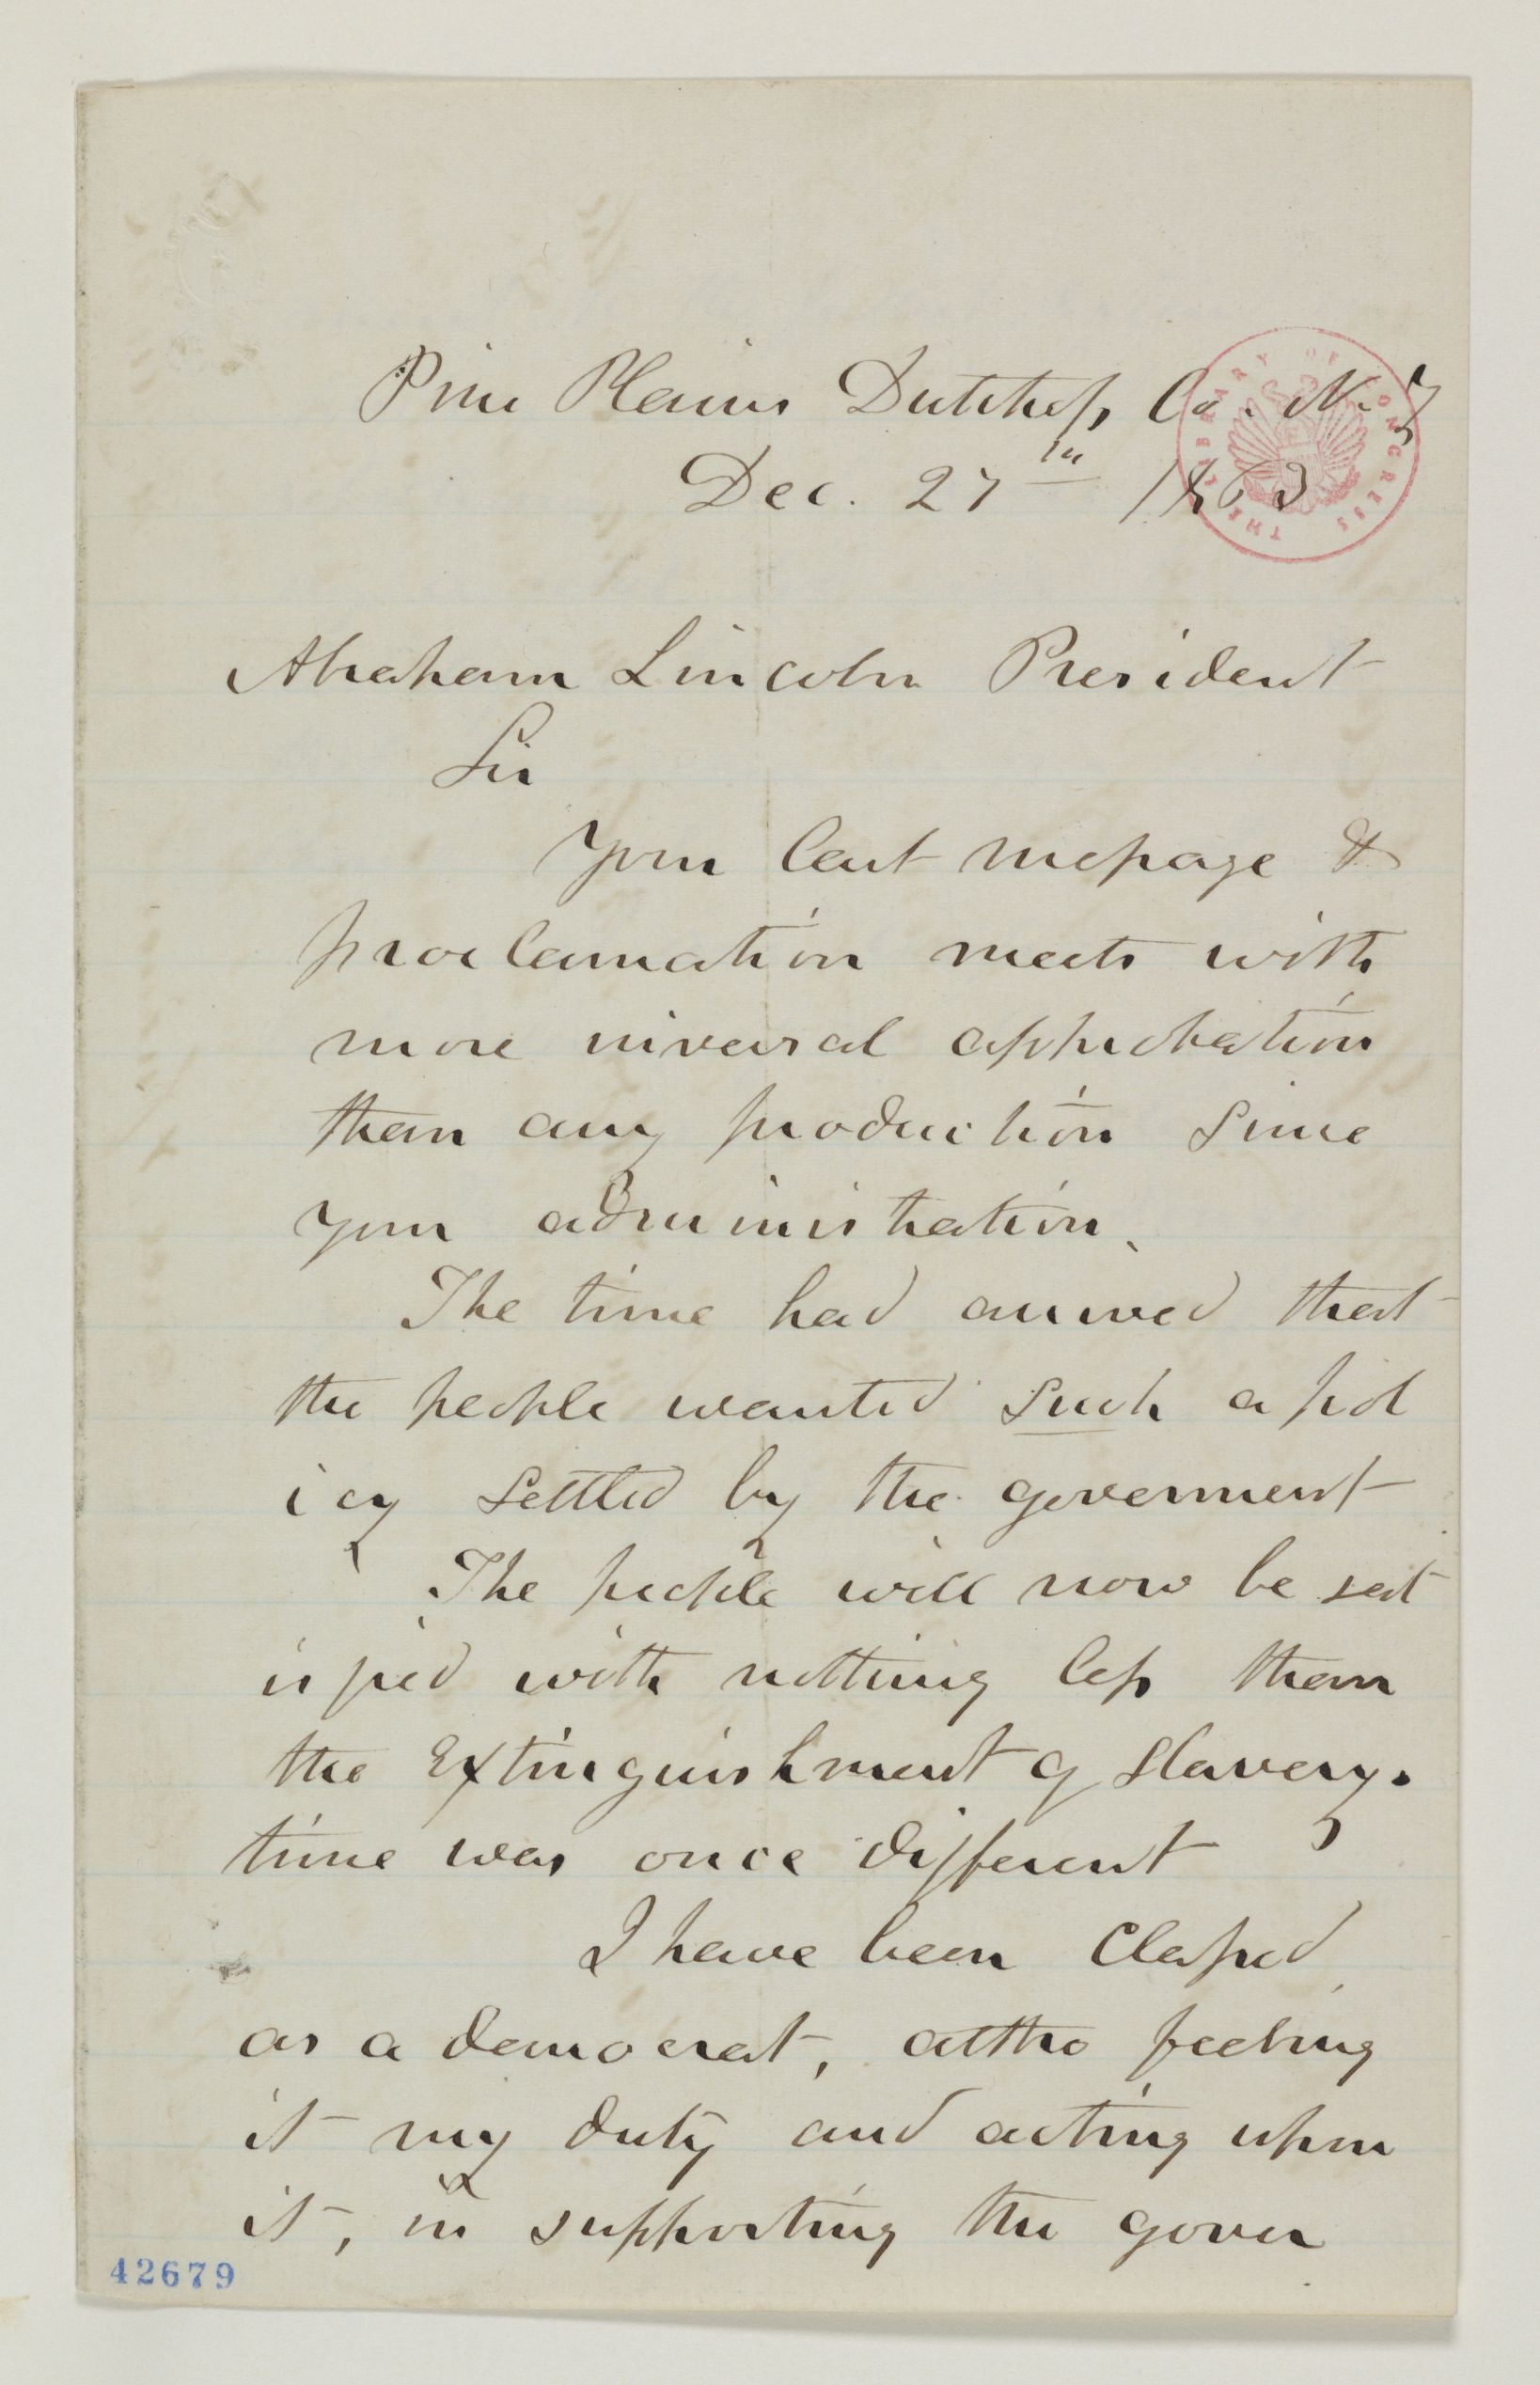 Pine Plains Dutchess Co. N. Y
Dec. 27th 1863
THE LIBRARY OF CONGRESS
Abraham Lincoln President
Sir
Your last message &
proclamation meets with
more universal approbation
than any production since
your administration.
The time had arrived that
the people wanted such a pol
icy settled by the goverment
The people will now be sat
isfied with nothing less than
the Extinguishment of slavery.
time was once different
I have been Classed
as a democrat, altho feeling
it my duty and acting upon
it, in supporting the gover
42679